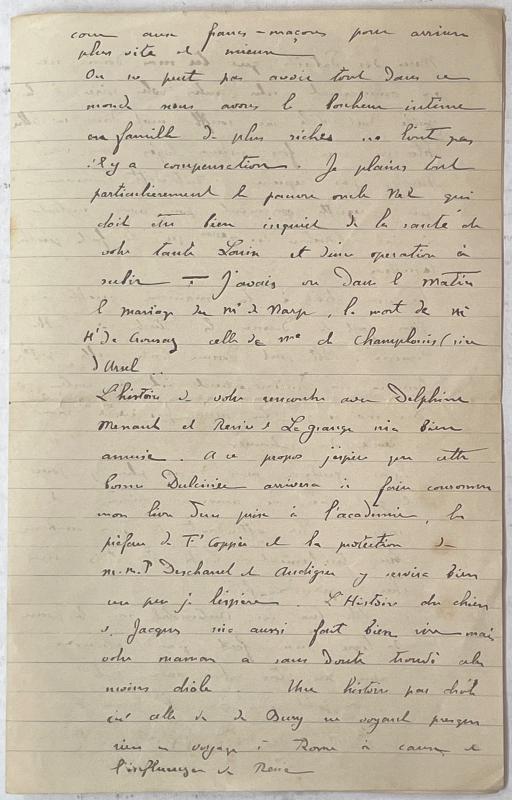 com aux francs-maçons pour arriver
plus vite et mieux
On ne peut pas avoir tout dans ce
monde nous avons le bonheur intime
en famille de plus riches ne l'ont pas
il y a compensation. Je plains tout
particulièrement le pauvre oncle qui
doit être bien inquiet de la santé de
votre tante et d'une operation à
subir — J'avais vu dans le Matin
le mariage de Mr de la mort de Mr
de celle de Mme de Champlouis (née
d'Ursel
L'histoire de votre rencontre avec Delphine
Menault et Lagrange m'a bien
amusée. A ce propos j'espère que cette
bonne Dulcinée arrivera à faire couronner
mon livre d'un prix à l'académie, la
préface de Fs Coppée et la protection de
M.M. P Deschanel et Audigier y servira bien
un peu je l'espère. L'Histoire du chien
de Jacques m'a aussi fait bien rire mais
votre maman a sans doute trouvé cela
moins drôle. Une histoire pas drôle
c'est celle de de Bury ne voyant presque
rien en voyage à Rome à cause de
l'influenza de